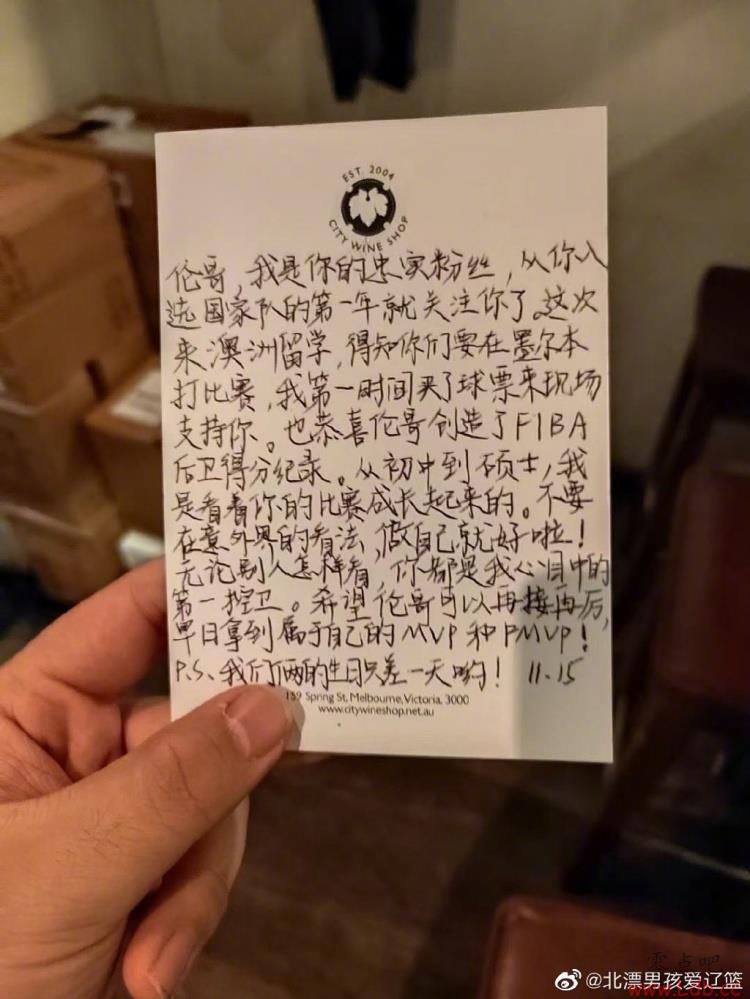 EST. 2004
CITY WINE SHOP
伦哥，我是你的忠实粉丝，从你入
选国家队的第一年就关注你了。这次
来澳洲留学，得知你们要在墨尔本
打比赛，我第一时间买了球票来现场
支持你。也恭喜伦哥创造了FIBA
后卫得分纪录。从初中到硕士，我
是看着你的比赛成长起来的。不要
在意外界的看法，做自己就好啦！
无论别人怎样看，你都是我心目中的
第一控卫。希望伦哥可以再接再厉，
早日拿到属于自己的MVP和FMVP！
P.S、我们俩的生日只差一天哟！ 11.15
159 Spring St, Melbourne, Victoria, 3000
www.citywineshop.net.au
@北漂男孩爱辽篮